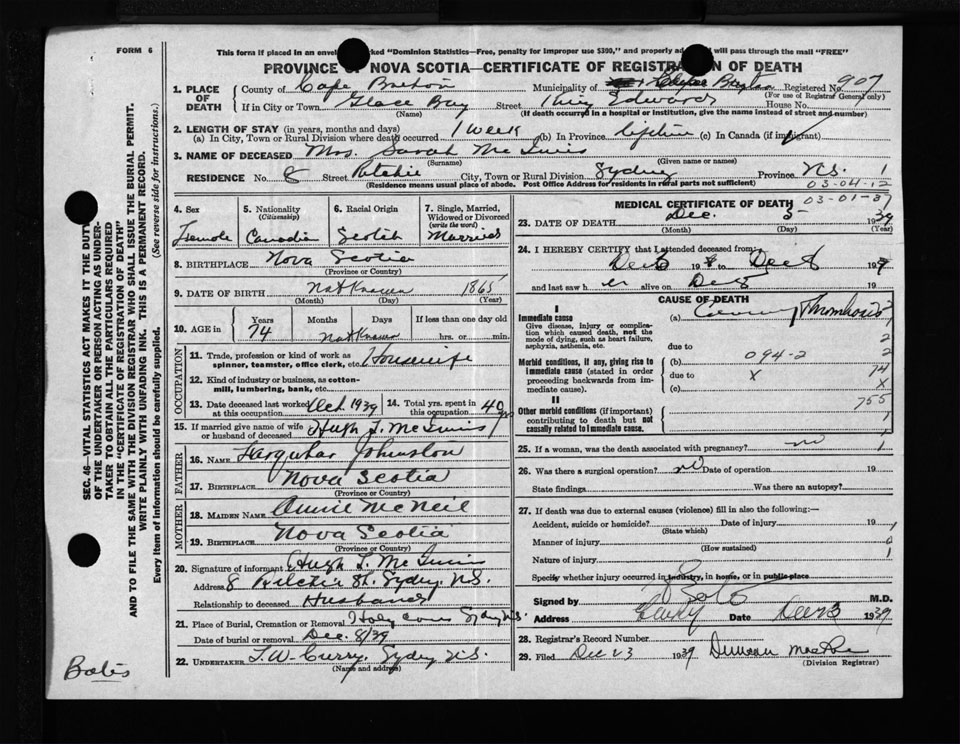 FORM 6
This form if placed in an envel marked "Dominion Statistics—Free, penalty for improper use $300," and properly ad will pass through the mail "FREE"
PROVINCE OF NOVA SCOTIA—CERTIFICATE OF REGISTRATION OF DEATH
1. PLACE OF DEATH County of Cape Breton Municipality of Cape Breton Registered No 907
(For use of Registrar General only)
If in City or Town Glace Bay Street King Edward House No.
(Name) (If death occurred in a hospital or institution, give the name instead of street and number)
2. LENGTH OF STAY (in years, months and days)
(a) In City, Town or Rural Division where death occurred 1 week (b) In Province Lifetime (c) In Canada (if immigrant)
3. NAME OF DECEASED Mrs. Sarah McInnis
(Surname) (Given name or names)
RESIDENCE No 8 Street Ritchie City, Town or Rural Division Sydney Province N.S. 1
(Residence means usual place of abode. Post Office Address for residents in rural parts not sufficient) 03-04-12
4. Sex 5. Nationality (Citizenship) 6. Racial Origin 7. Single, Married, Widowed or Divorced (write the word)
Female Canadian Scotch Married
8. BIRTHPLACE Nova Scotia
(Province or Country)
9. DATE OF BIRTH Not Known 1865
(Month) (Day) (Year)
10. AGE in Years Months Days If less than one day old
74 Not Known hrs. or min.
OCCUPATION
11. Trade, profession or kind of work as spinner, teamster, office clerk, etc. Housewife
12. Kind of industry or business, as cotton-mill, lumbering, bank, etc.
13. Date deceased last worked at this occupation Oct. 1939 14. Total yrs. spent in this occupation 40 yrs
15. If married give name of wife or husband of deceased Hugh J. McInnis
FATHER
16. NAME Farquhar Johnston
17. BIRTHPLACE Nova Scotia
(Province or Country)
MOTHER
18. MAIDEN NAME Annie McNeil
19. BIRTHPLACE Nova Scotia
(Province or Country)
20. Signature of informant Hugh J. McInnis
Address 8 Ritchie St. Sydney, N.S.
Relationship to deceased Husband
21. Place of Burial, Cremation or Removal Holy Cross Sydney N.S.
Date of burial or removal Dec. 8/39
22. UNDERTAKER T. W. Curry, Sydney N.S.
(Name and address)
MEDICAL CERTIFICATE OF DEATH 03-01-37
23. DATE OF DEATH Dec. 5 1939
(Month) (Day) (Year)
24. I HEREBY CERTIFY that I attended deceased from:
Dec 19 to Dec 19
and last saw h er alive on Dec 19
CAUSE OF DEATH
I
Immediate cause (a) Coronary Thrombosis
Give disease, injury or complication which caused death, not the mode of dying, such as heart failure, asphyxia, asthenia, etc.
due to 2
Morbid conditions, if any, giving rise to immediate cause (stated in order proceeding backwards from immediate cause). (b) 094-2 2
due to X 74
(c) X
II 755
Other morbid conditions (if important) contributing to death but not causally related to immediate cause. 1
25. If a woman, was the death associated with pregnancy? no 1
26. Was there a surgical operation? no Date of operation 19
State findings Was there an autopsy?
27. If death was due to external causes (violence) fill in also the following:—
Accident, suicide or homicide? Date of injury 19
(State which)
Manner of injury
(How sustained)
Nature of injury 1
Specify whether injury occurred in industry, in home, or in public place
Signed by M.D.
Address Date Dec 23 1939
28. Registrar's Record Number
29. Filed Dec 23 1939 Duncan
(Division Registrar)
SEC. 46—VITAL STATISTICS ACT MAKES IT THE DUTY OF THE UNDERTAKER OR PERSON ACTING AS UNDERTAKER TO OBTAIN ALL THE PARTICULARS REQUIRED IN THE "CERTIFICATE OF REGISTRATION OF DEATH" AND TO FILE THE SAME WITH THE DIVISION REGISTRAR WHO SHALL ISSUE THE BURIAL PERMIT.
WRITE PLAINLY WITH UNFADING INK. THIS IS A PERMANENT RECORD.
Every item of information should be carefully supplied. (See reverse side for instructions.)
Bates